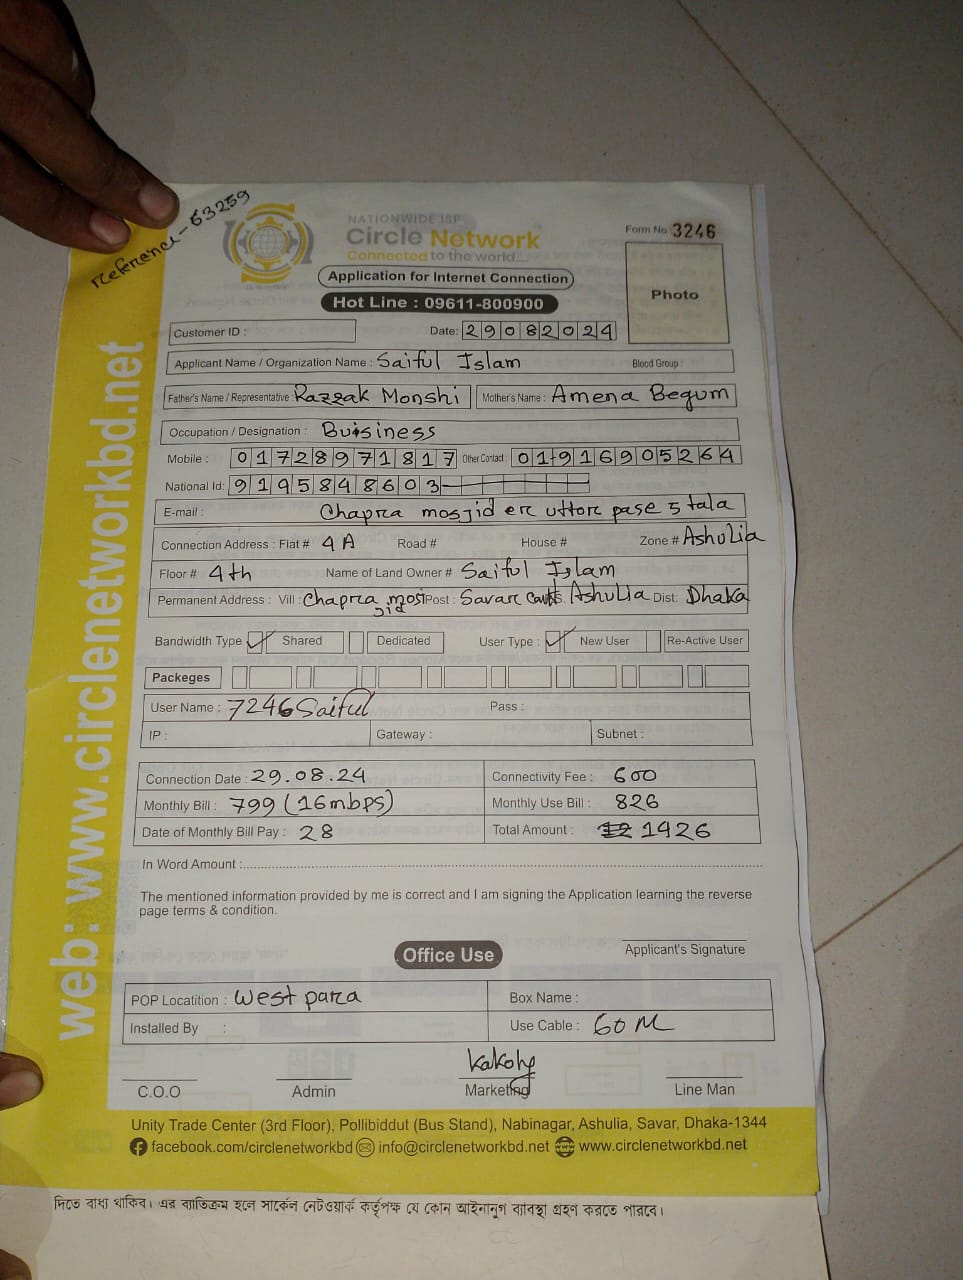 Reference-53259
NATIONWIDE ISP
Circle Network
Connected to the world...
Form No 3246
Application for Internet Connection
Hot Line : 09611-800900
Photo
Customer ID :
Date: 29082024
Applicant Name / Organization Name : Saiful Islam Blood Group :
Father's Name / Representative : Razzak Monshi Mother's Name : Amena Begum
Occupation / Designation : Buisiness
Mobile : 01728971817 Other Contact : 01916905264
National Id: 9195848603
E-mail : Chapra mosjid er uttor pase 5 tala
Connection Address : Flat # 4 A Road # House # Zone # Ashulia
Floor # 4th Name of Land Owner # Saiful Islam
Permanent Address : Vill : Chapra mosjid Post : Savar Cantt Ashulia Dist: Dhaka
Bandwidth Type Shared Dedicated User Type : New User Re-Active User
Packeges
User Name : 7246Saiful Pass :
IP : Gateway : Subnet :
Connection Date : 29.08.24 Connectivity Fee : 600
Monthly Bill : 799 (16mbps) Monthly Use Bill : 826
Date of Monthly Bill Pay : 28 Total Amount : 1426
In Word Amount :
The mentioned information provided by me is correct and I am signing the Application learning the reverse
page terms & condition.
Applicant's Signature
Office Use
POP Locatition : West para Box Name :
Installed By : Use Cable : 60 M
Kakoly
C.O.O Admin Marketing Line Man
Unity Trade Center (3rd Floor), Pollibiddut (Bus Stand), Nabinagar, Ashulia, Savar, Dhaka-1344
facebook.com/circlenetworkbd info@circlenetworkbd.net www.circlenetworkbd.net
web: www.circlenetworkbd.net
দিতে বাধ্য থাকিব। এর ব্যাতিক্রম হলে সার্কেল নেটওয়ার্ক কর্তৃপক্ষ যে কোন আইনানুগ ব্যাবস্থা গ্রহণ করতে পারবে।